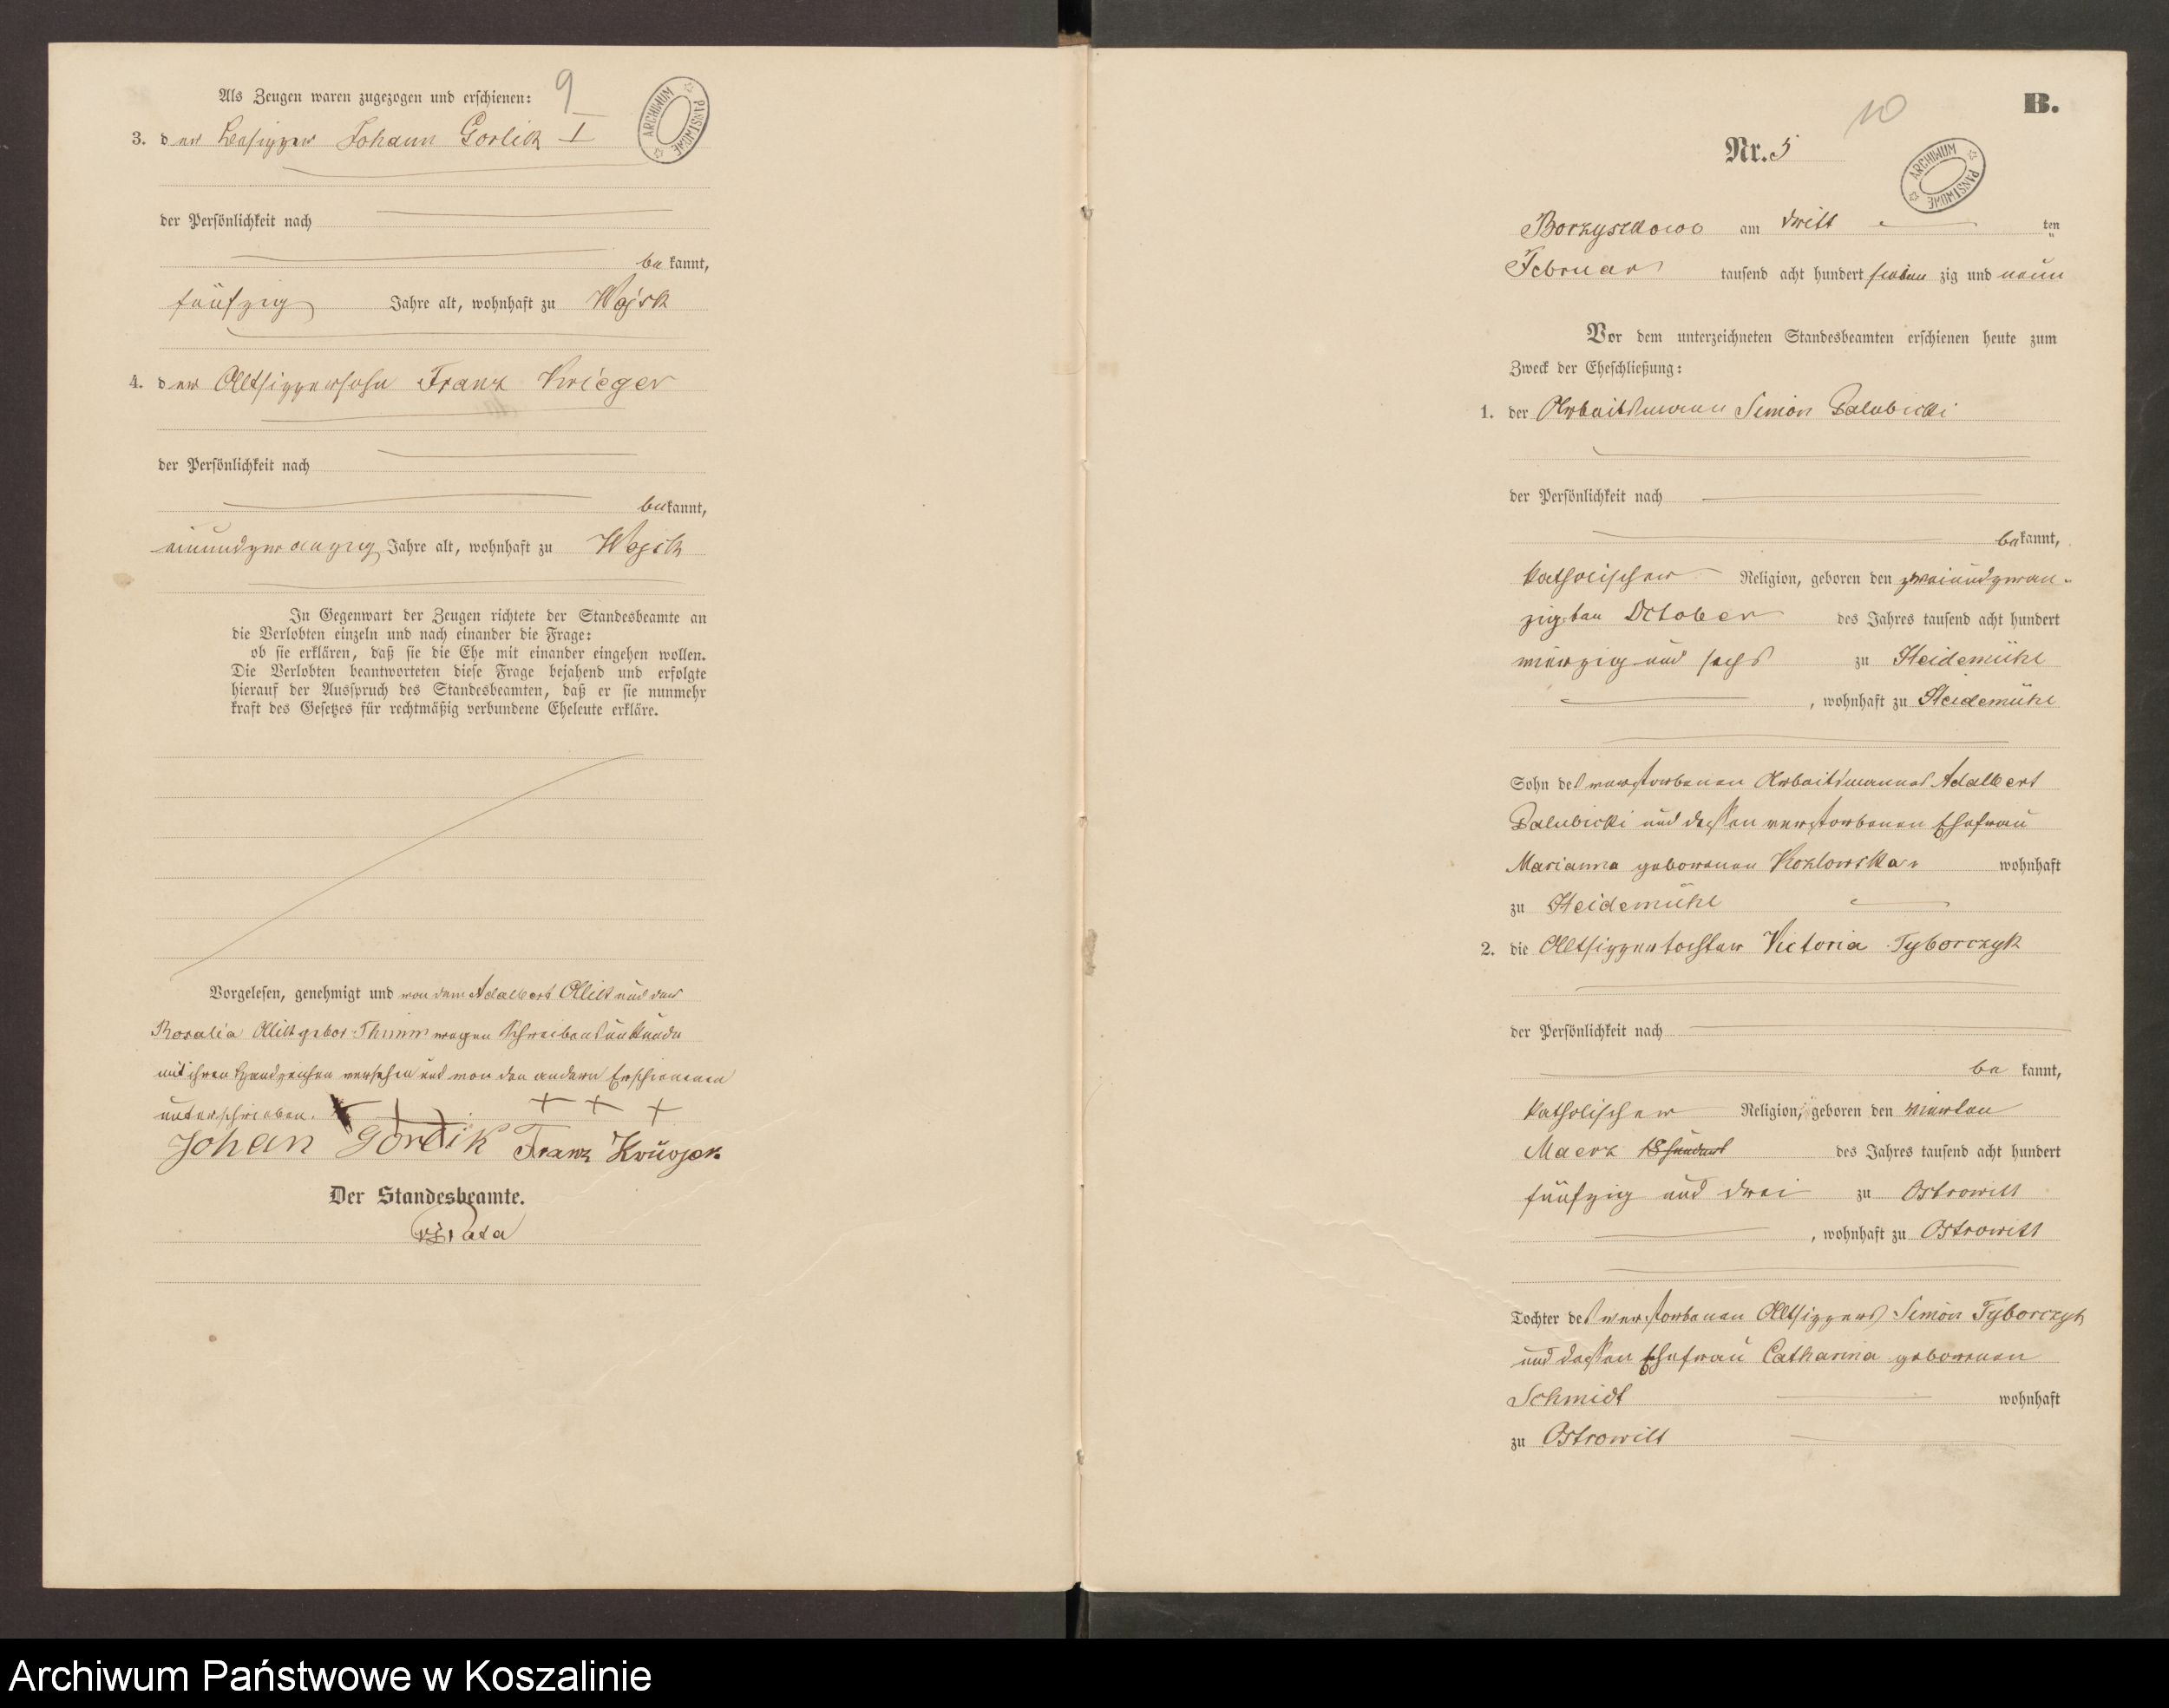 Als Zeugen waren zugezogen und erschienen:
9
ARCHIWUM PAŃSTWOWE
3. der Besitzer Johann Gorlik I
der Persönlichkeit nach
be kannt,
fünfzig Jahre alt, wohnhaft zu Wojsk
4. der Altsitzersohn Franz Krieger
der Persönlichkeit nach
bekannt,
einundzwanzig Jahre alt, wohnhaft zu Wojsk
In Gegenwart der Zeugen richtete der Standesbeamte an
die Verlobten einzeln und nach einander die Frage:
ob sie erklären, daß sie die Ehe mit einander eingehen wollen.
Die Verlobten beantworteten diese Frage bejahend und erfolgte
hierauf der Ausspruch des Standesbeamten, daß er sie nunmehr
kraft des Gesetzes für rechtmäßig verbundene Eheleute erkläre.
Vorgelesen, genehmigt und von dem Adalbert Ollik und der
Rosalia Ollik gebor Thimm wegen Schreibensunkunde
mit ihren Handzeichen versehen und von den andern Erschienenen
unterschrieben. + + + + + +
Johan Gorlik Franz
Der Standesbeamte.
B.
10
Nr. 5
ARCHIWUM PAŃSTWOWE
Borzyszkowo am dritt ten
Februar tausend acht hundert sieben zig und neun
Vor dem unterzeichneten Standesbeamten erschienen heute zum
Zweck der Eheschließung:
1. der Arbeitsmann Simon Palubicki
der Persönlichkeit nach
bekannt,
katholischer Religion, geboren den zweiundzwan-
zigsten October des Jahres tausend acht hundert
vierzig und sechs zu Heidemühl
, wohnhaft zu Heidemühl
Sohn des verstorbenen Arbeitsmannes Adalbert
Palubicki und dessen verstorbenen Ehefrau
Marianna geborenen Kozlowska, wohnhaft
zu Heidemühl
2. die Altsitzertochter Victoria Tyborczyk
der Persönlichkeit nach
be kannt,
katholischer Religion, geboren den vierten
Maerz 18hundert des Jahres tausend acht hundert
fünfzig und drei zu Ostrowitt
, wohnhaft zu Ostrowitt
Tochter des verstorbenen Altsitzers Simon Tyborczyk
und dessen Ehefrau Catharina geborenen
Schmidt wohnhaft
zu Ostrowitt
Archiwum Państwowe w Koszalinie